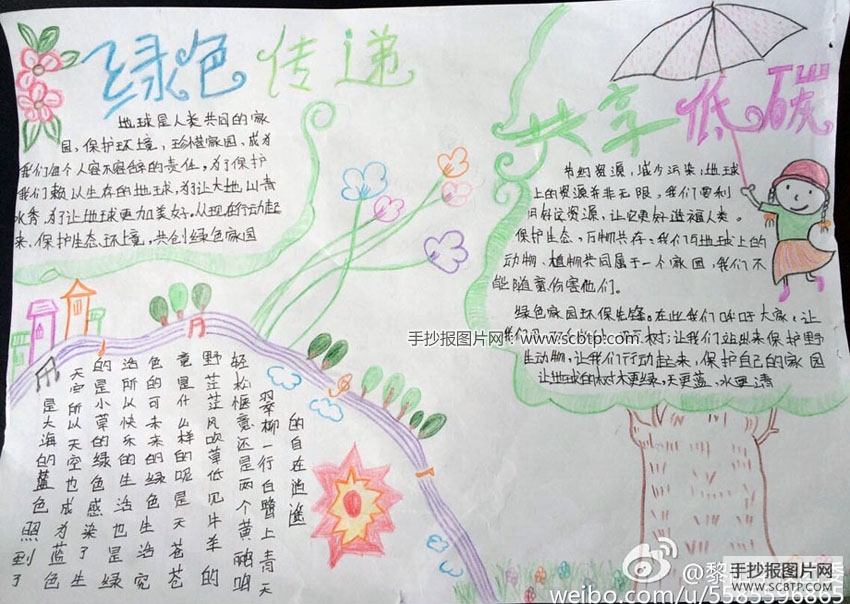 绿色传递
地球是人类共同的家
园，保护环境，珍惜家园，成为
我们每个人容不容辞的责任，为了保护
我们赖以生存的地球，为了让大地山青
水秀，为了让地球更加美好。从现在行动起
来，保护生态环境，共创绿色家园
共享低碳
节约资源，减少污染；地球
上的资源并非无限，我们要利
用好这资源，让它更好造福人类。
保护生态，万物共存：我们与地球上的
动物、植物共同属于一个家园，我们不
能随意伤害他们。
绿色家园环保先锋。在此我们呼吁大家：让
我们 树；让我们站出来保护野
生动物，让我们行动起来，保护自己的家园
让地球的树木更绿，天更蓝，水更清
是大海的蓝色照到了
天空所以天空也成为蓝色
的是小草的绿色感染了生
活所以快乐的生活也是绿
色的可未来的绿色生活究
竟是什么样的呢是天苍苍
野茫茫风吹草低见牛羊的
轻松惬意还是两个黄鹂鸣
翠柳一行白鹭上青天
的自在逍遥
手抄报图片网：www.scbtp.com
@黎
weibo.com/u/5585596865
手抄报图片网
WWW.SCBTP.COM